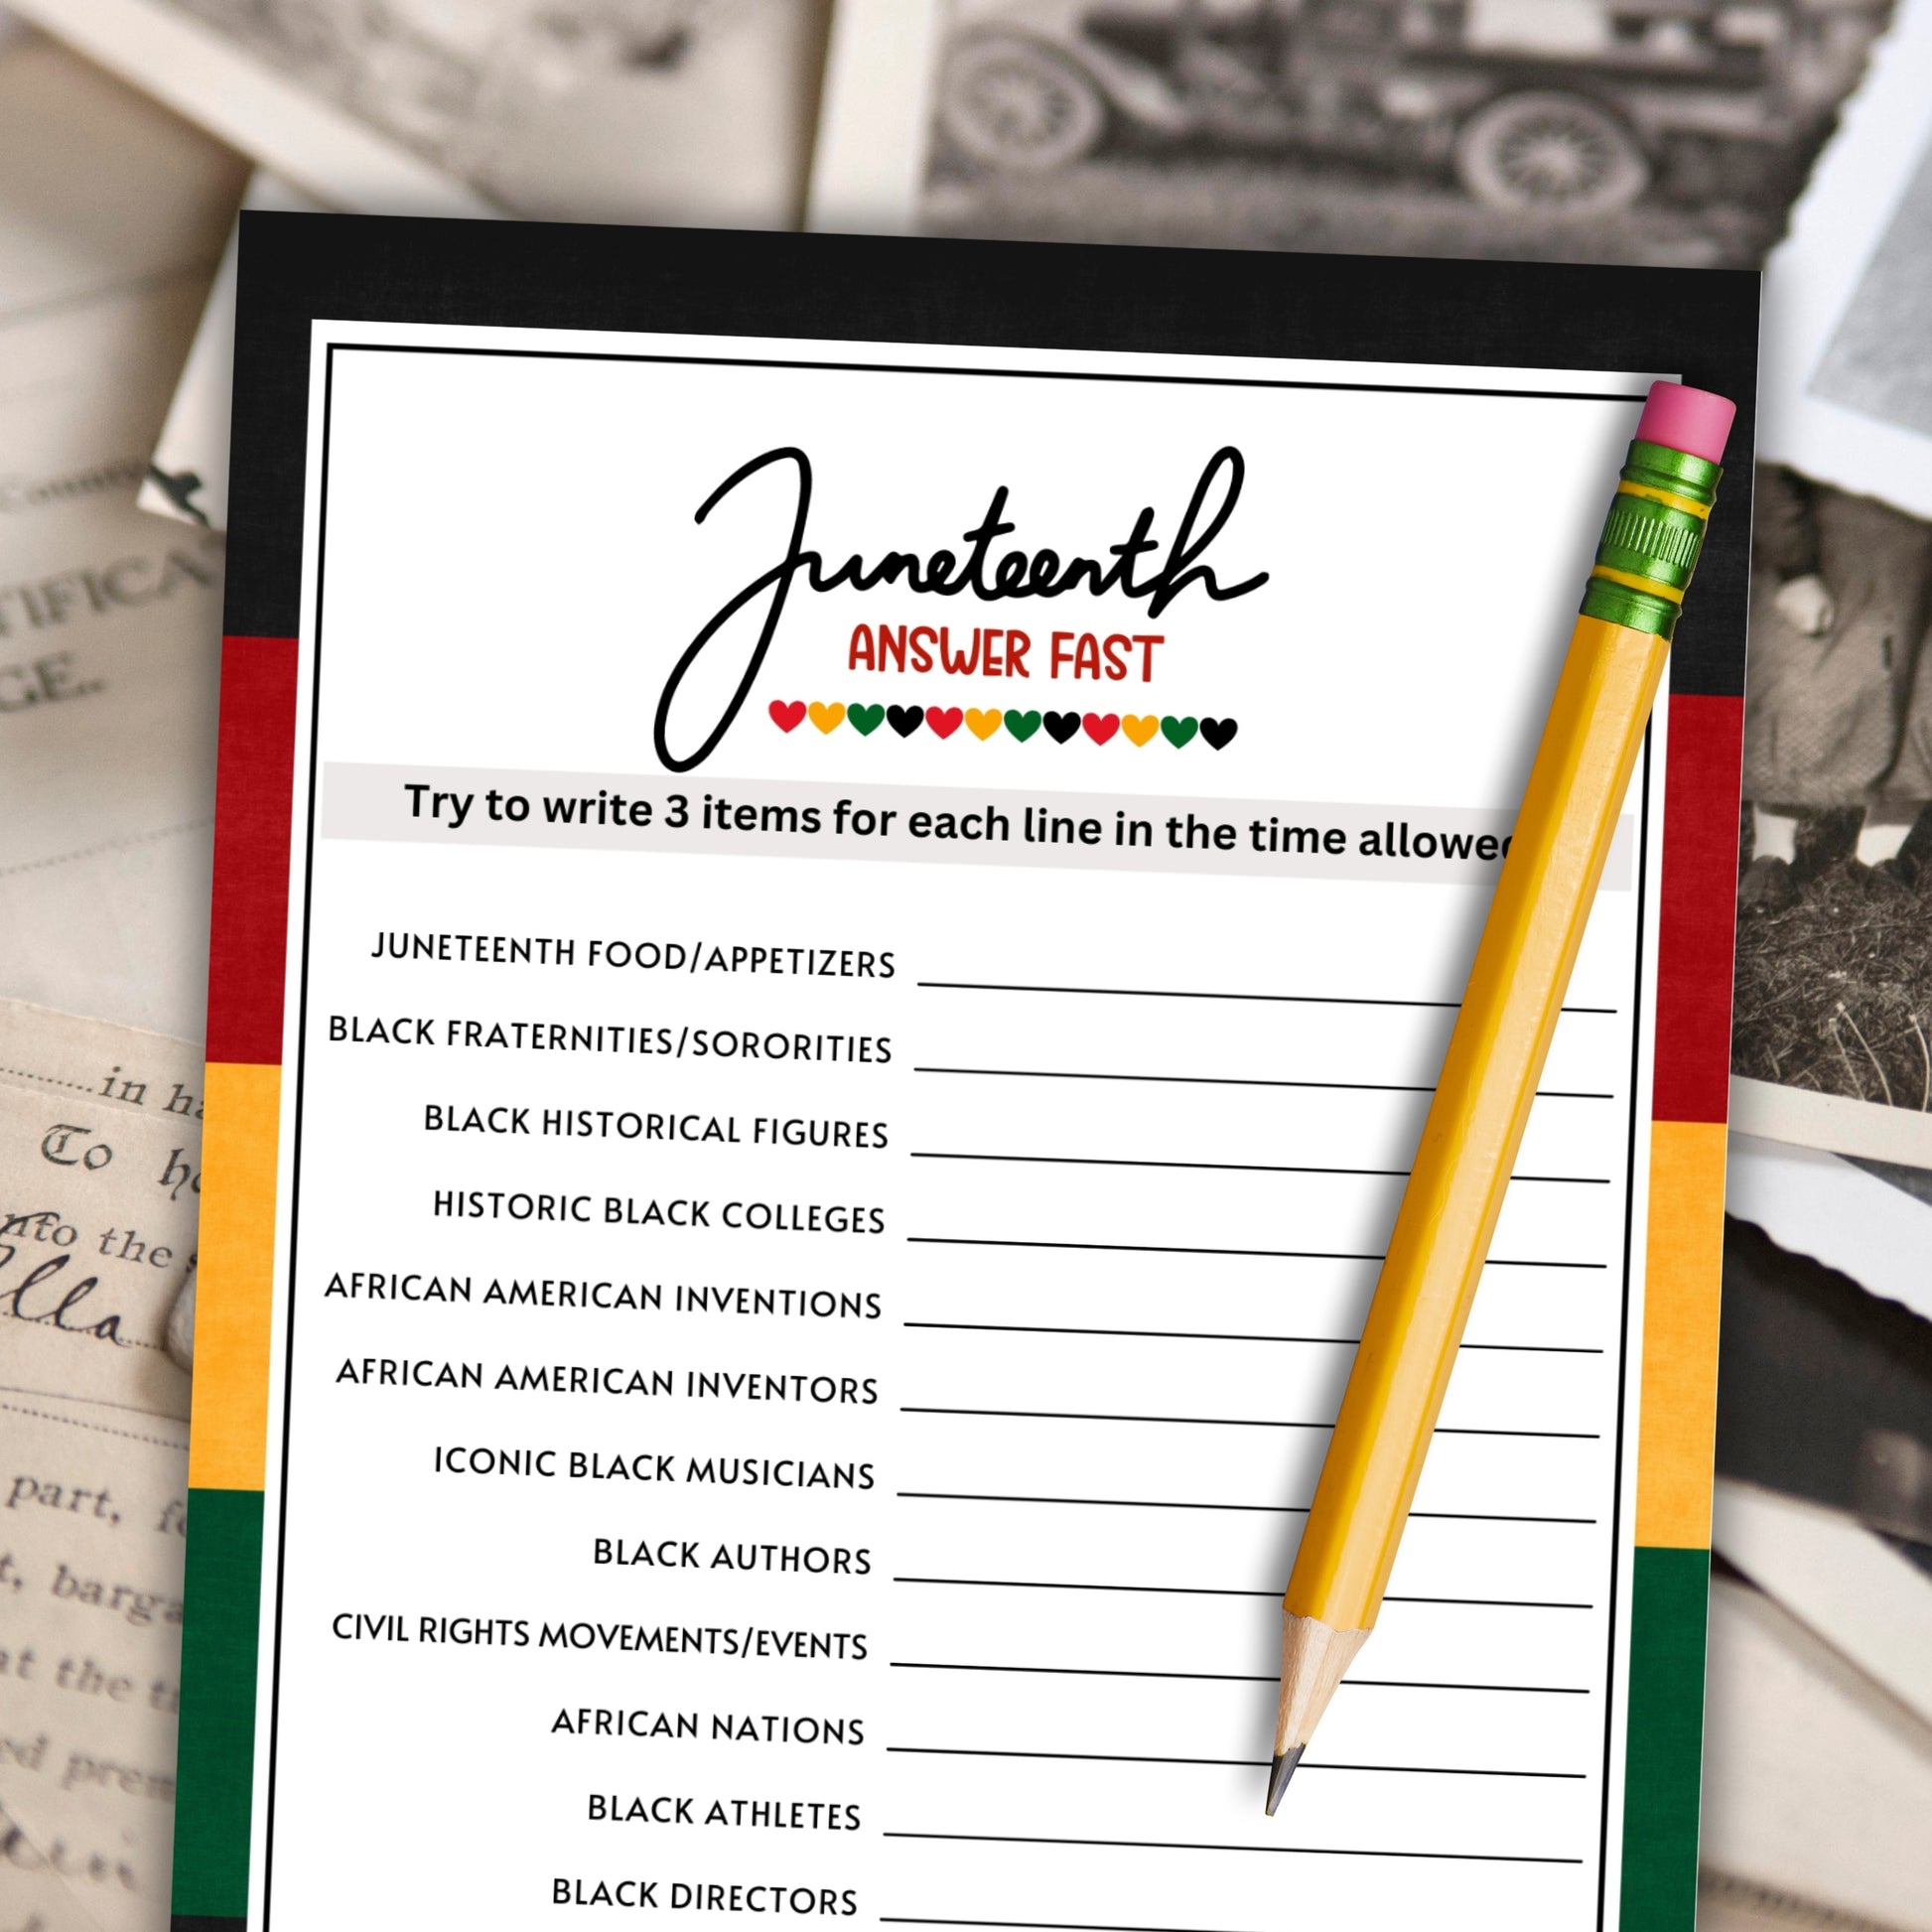 Juneteenth
ANSWER FAST
Try to write 3 items for each line in the time allowed
JUNETEENTH FOOD/APPETIZERS
BLACK FRATERNITIES/SORORITIES
BLACK HISTORICAL FIGURES
HISTORIC BLACK COLLEGES
AFRICAN AMERICAN INVENTIONS
AFRICAN AMERICAN INVENTORS
ICONIC BLACK MUSICIANS
BLACK AUTHORS
CIVIL RIGHTS MOVEMENTS/EVENTS
AFRICAN NATIONS
BLACK ATHLETES
BLACK DIRECTORS
in
To
the
part,
at the